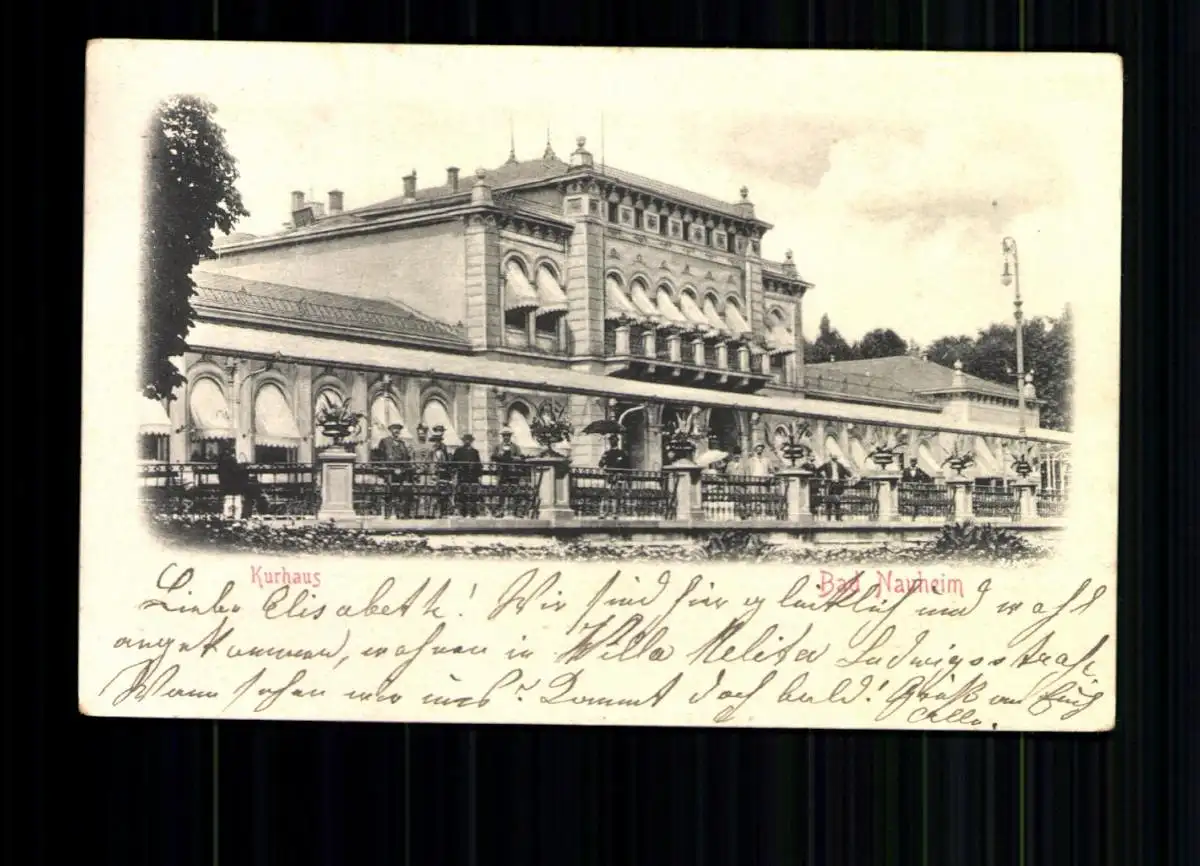 Kurhaus
Bad Nauheim
Liebe Elisabeth! Wir sind hier glücklich und wohl
angekommen, wohnen in Villa Melita Ludwigsstraße
Wann sehen wir uns? Kommt doch bald! Gruß an Euch